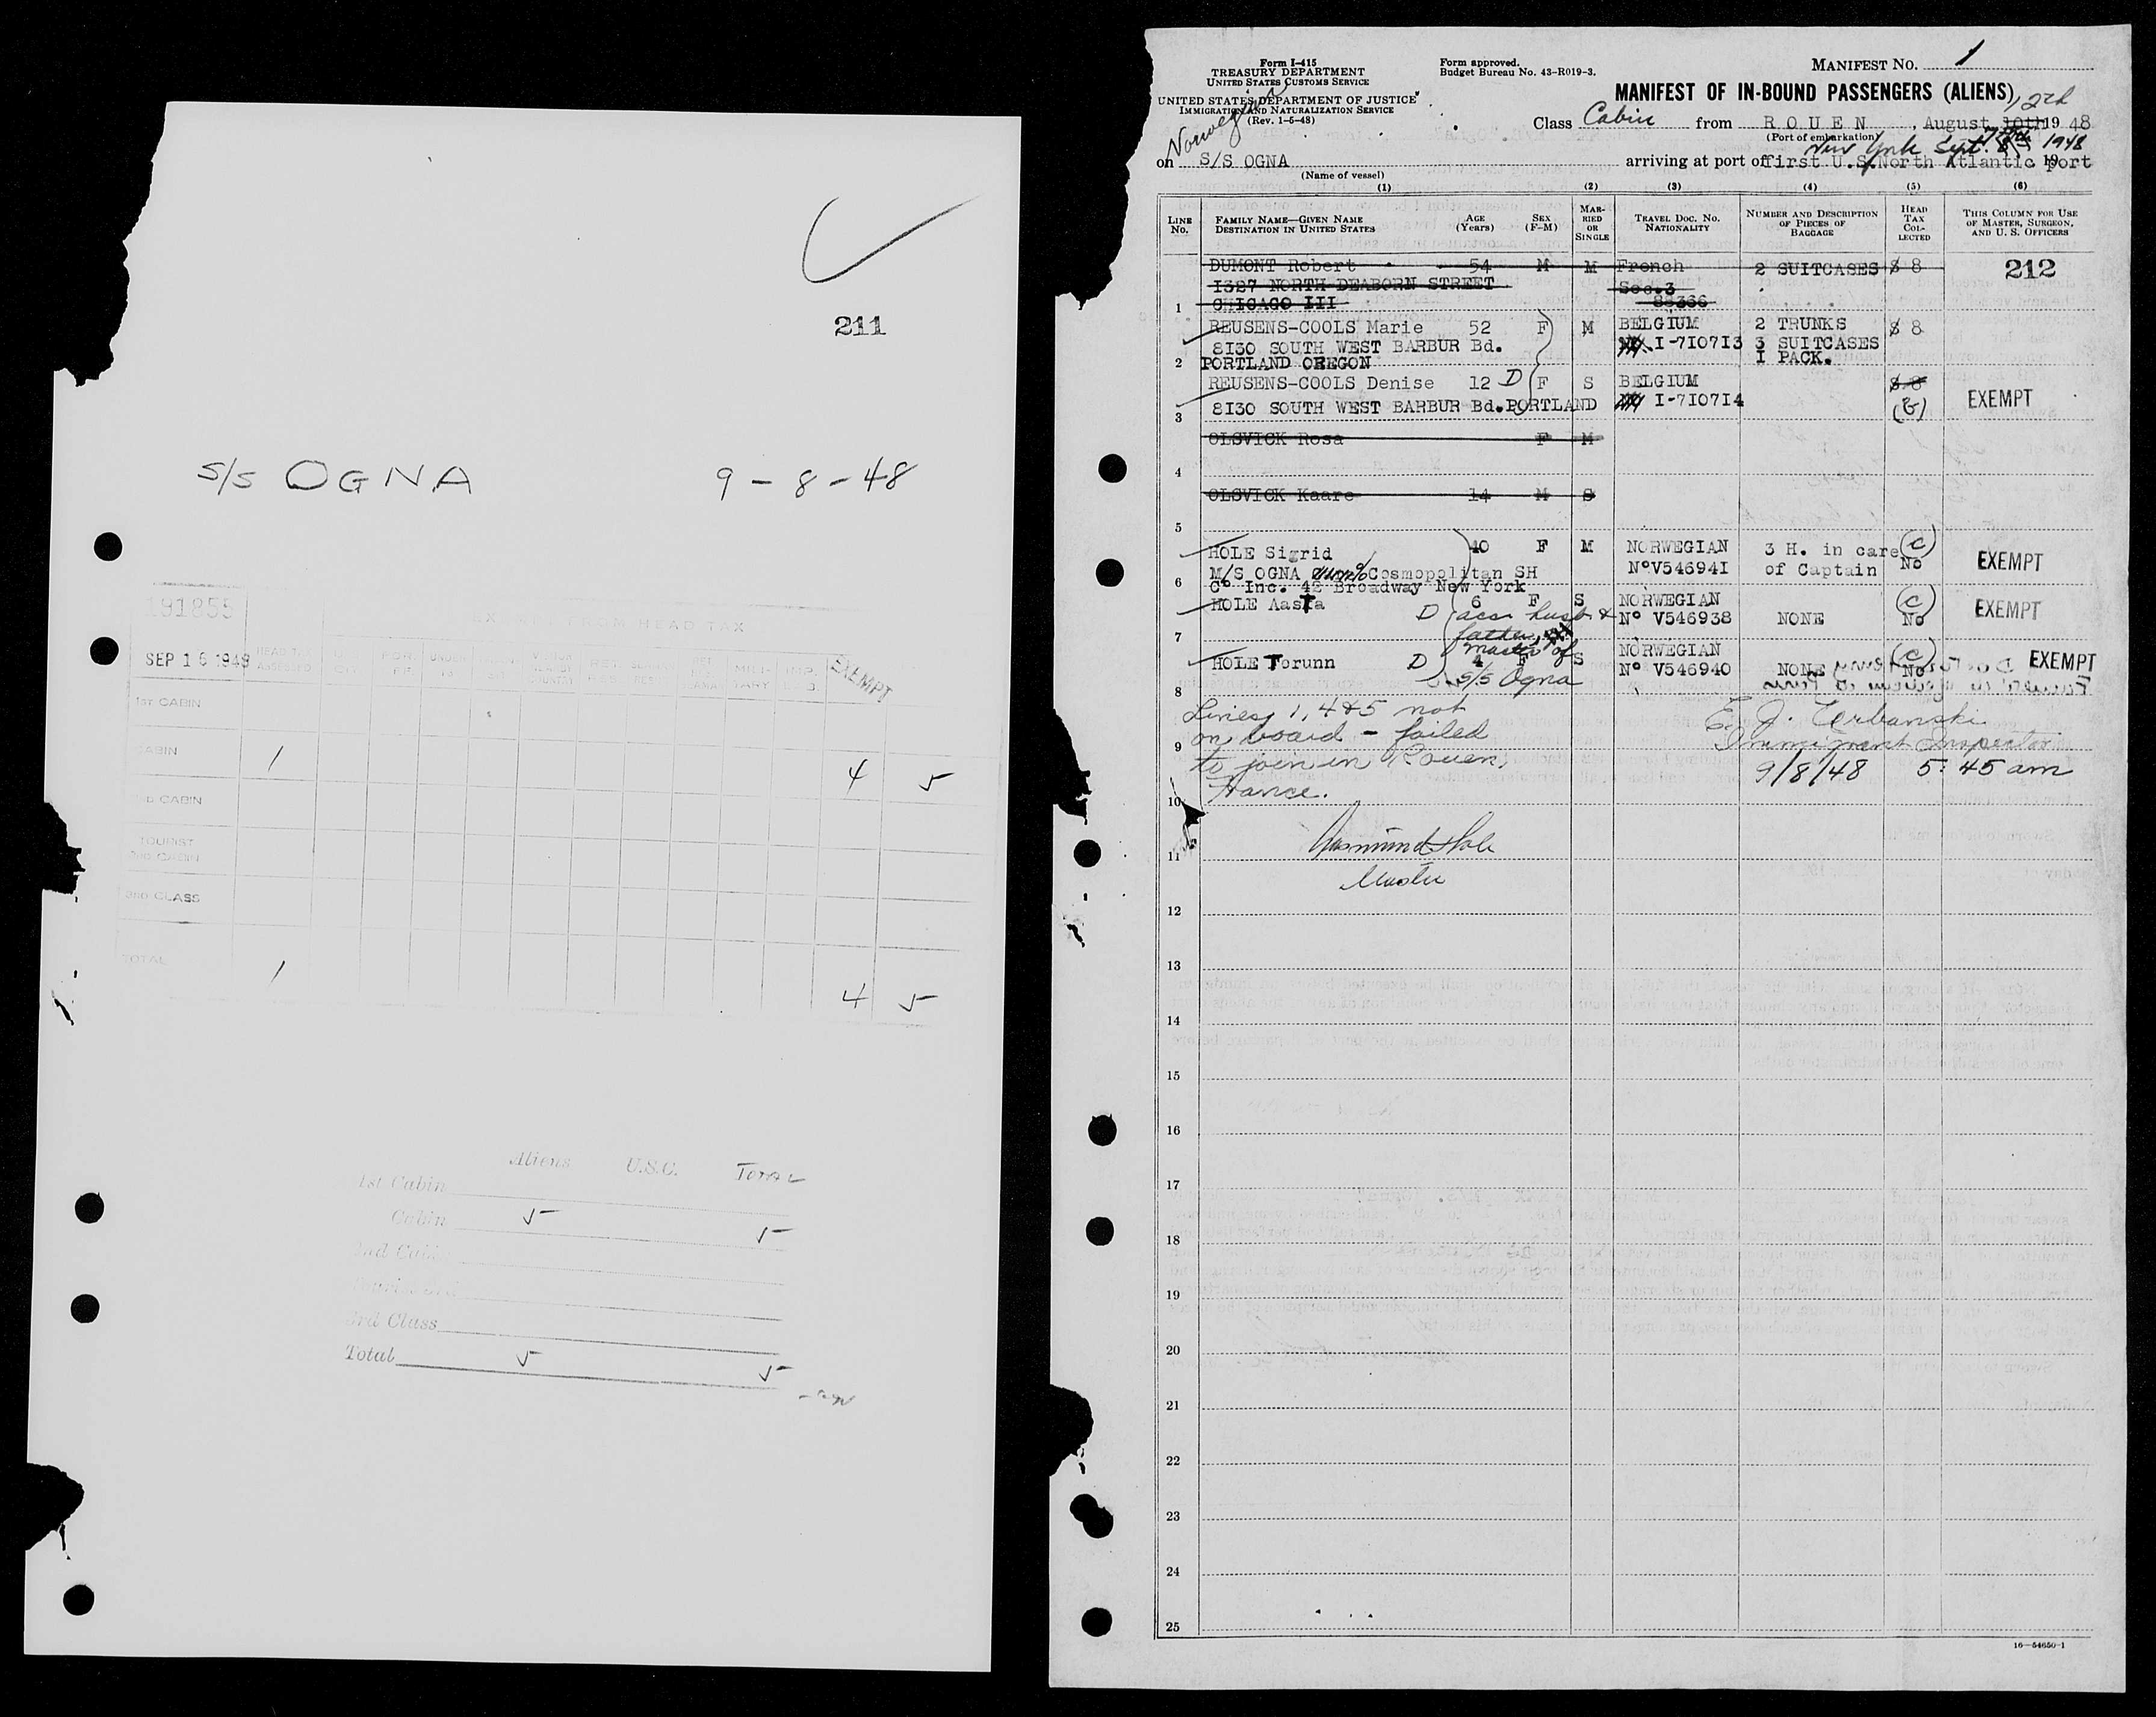 211
S/S OGNA 9-8-48
191855
EXEMPT FROM HEAD TAX
SEP 16 1948 HEAD TAX ASSESSED UNDER EXEMPT
1ST CABIN
CABIN 1 4 5
2ND CABIN
TOURIST
2ND CABIN
3RD CLASS
TOTAL 1 4 5
Aliens U.S.C. TOTAL
1st Cabin
Cabin 5 5
2nd Cabin
3rd Class
Total 5 5
Form I-415
TREASURY DEPARTMENT
UNITED STATES CUSTOMS SERVICE
UNITED STATES DEPARTMENT OF JUSTICE
IMMIGRATION AND NATURALIZATION SERVICE
(Rev. 1-5-48)
Form approved.
Budget Bureau No. 43-R019-3.
MANIFEST NO. 1
MANIFEST OF IN-BOUND PASSENGERS (ALIENS)
Class Cabin from ROUEN, August 10th 19 48
(Port of embarkation)
New York Sept. 1948
Norwegian
on S/S OGNA arriving at port of first U.S. North Atlantic port 19
(Name of vessel)
(1) (2) (3) (4) (5) (6)
LINE NO. FAMILY NAME—GIVEN NAME DESTINATION IN UNITED STATES AGE (Years) SEX (F-M) MARRIED OR SINGLE TRAVEL DOC. NO. NATIONALITY NUMBER AND DESCRIPTION OF PIECES OF BAGGAGE HEAD TAX COLLECTED THIS COLUMN FOR USE OF MASTER, SURGEON, AND U. S. OFFICERS
DUMONT Robert 54 M M French 2 SUITCASES $ 8 212
1327 NORTH DEABORN STREET Sec.3
1 CHICAGO III 88366
REUSENS-COOLS Marie 52 F M BELGIUM 2 TRUNKS $ 8
8I30 SOUTH WEST BARBUR Bd. I-7I07I3 3 SUITCASES
2 PORTLAND OREGON I PACK.
REUSENS-COOLS Denise 12 D F S BELGIUM $ 8
3 8I30 SOUTH WEST BARBUR Bd. PORTLAND I-7I07I4 EXEMPT
OLSVICK Rosa F M
4
OLSVICK Kaare 14 M S
5
HOLE Sigrid 40 F M NORWEGIAN 3 H. in care (c) EXEMPT
M/S OGNA c/o Cosmopolitan SH N° V54694I of Captain No
6 C° Inc. 42 Broadway New York
HOLE Aasta 6 F S NORWEGIAN (c) EXEMPT
D acc husb & N° V546938 NONE No
7 father, master of
HOLE Torunn D 4 F S NORWEGIAN (c) EXEMPT
S/S Ogna N° V546940 NONE No
8
Lines 1, 4 & 5 not
on board - failed
to join in Rouen,
France.
E. J. Urbanski
Immigrant Inspector
9/8/48 5:45 am
9
10
11
Master
12
13
14
15
16
17
18
19
20
21
22
23
24
25
16—54650-1